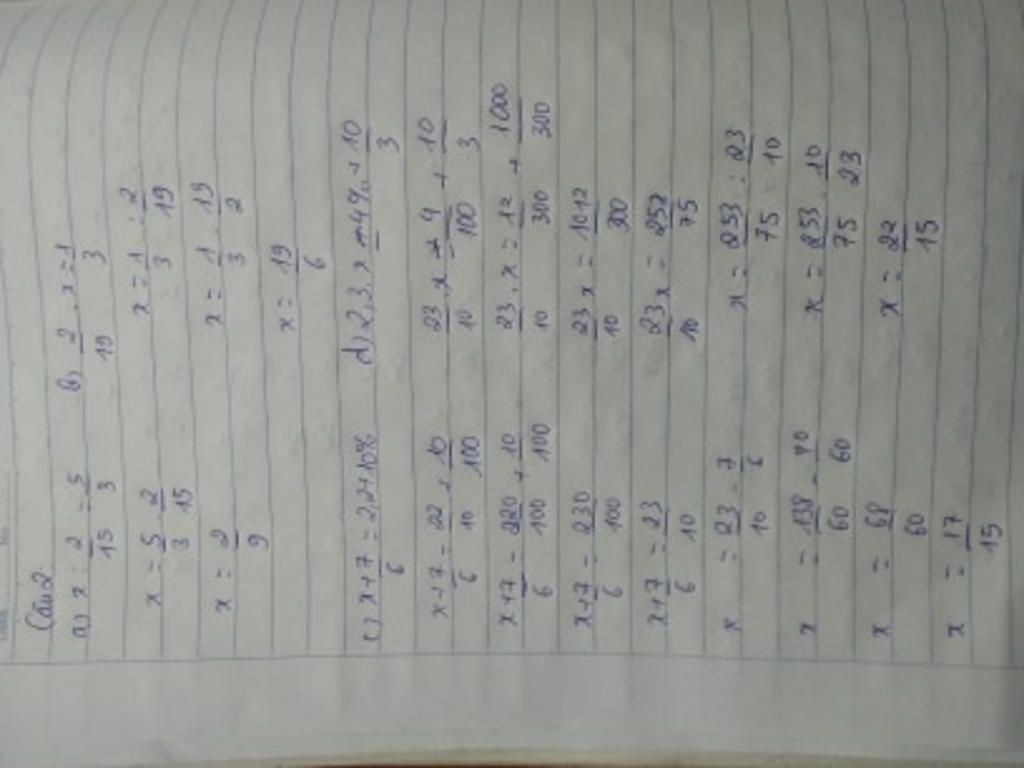 Câu 2
a) x : 2/15 = 5/3
x = 5/3 . 2/15
x = 2/9
b) 2/19 . x = 1/3
x = 1/3 : 2/19
x = 1/3 . 19/2
x = 19/6
c) x + 7/6 = 2,2 + 10%
x + 7/6 = 22/10 + 10/100
x + 7/6 = 220/100 + 10/100
x + 7/6 = 230/100
x + 7/6 = 23/10
x = 23/10 - 7/6
x = 138/60 - 70/60
x = 68/60
x = 17/15
d) 2,3 . x = 4% + 10/3
23/10 . x = 4/100 + 10/3
23/10 . x = 12/300 + 1000/300
23/10 x = 1012/300
23/10 x = 253/75
x = 253/75 : 23/10
x = 253/75 . 10/23
x = 22/15